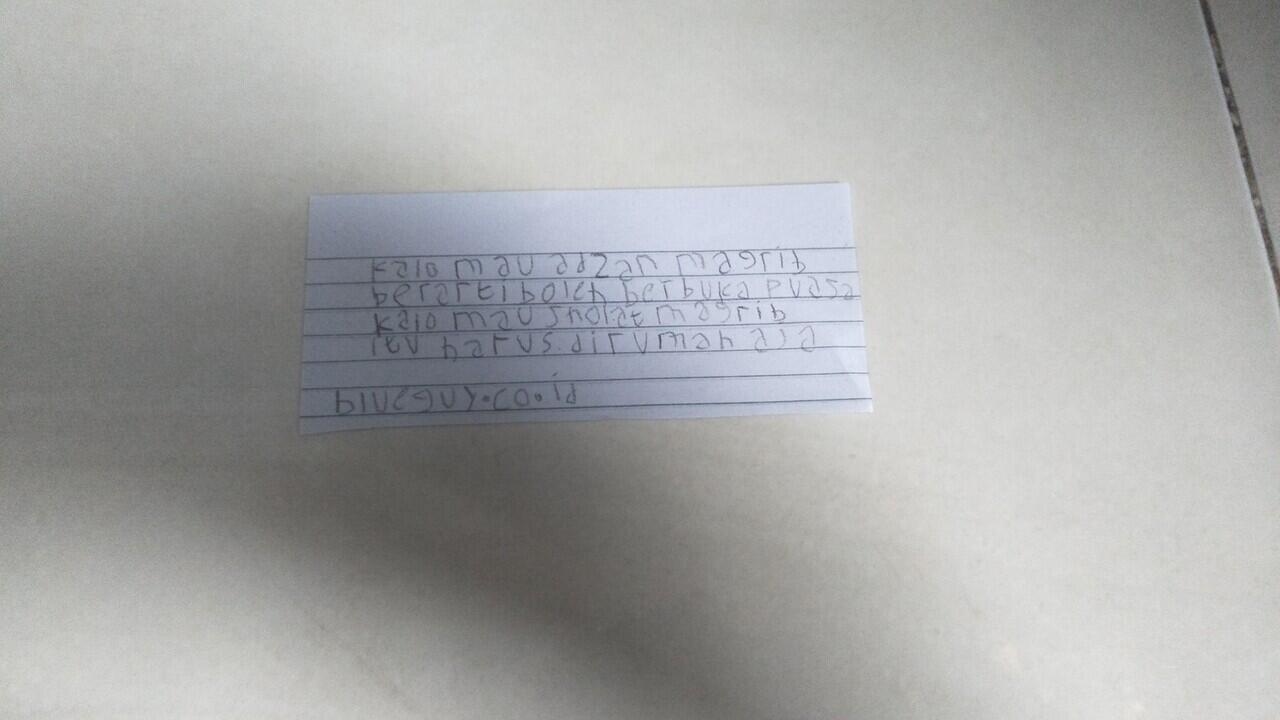 kalo mau adzan magrib
berarti boleh berbuka puasa
kalo mau sholat magrib
lau harus dirumah aja